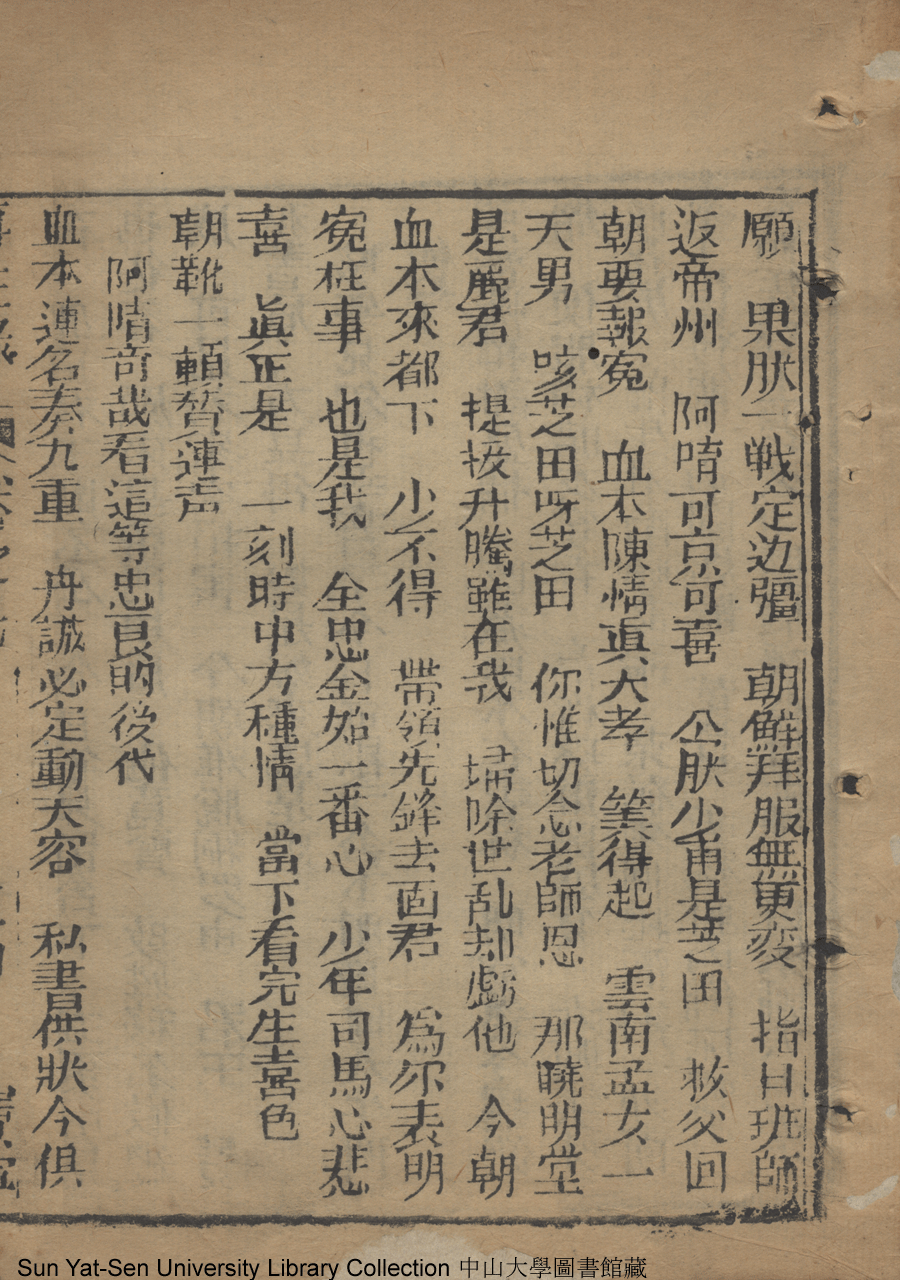 願 果肰一戦定边疆 朝鮮拜服無更变 指日班師
返帝州 阿唷可京可喜 公肰少甫是芝田 救父回
朝要報寃 血本陳情真大孝 筭得起 雲南孟女一
天男 咳芝田呀芝田 你惟切念老師恩 那曉明堂
是麗君 提拔升騰雖在我 埽除世乱却虧他 今朝
血本來都下 少不得 帶領先鋒去面君 為尔表明
寃枉事 也是我 全忠全始一番心 少年司馬心悲
喜 真正是 一刻時中方種情 當下看完生喜色
朝靴一頓賛連声
阿唷奇哉看這等忠良的後代
血本連名奏九重 丹誠必定動天容 私書供狀今俱